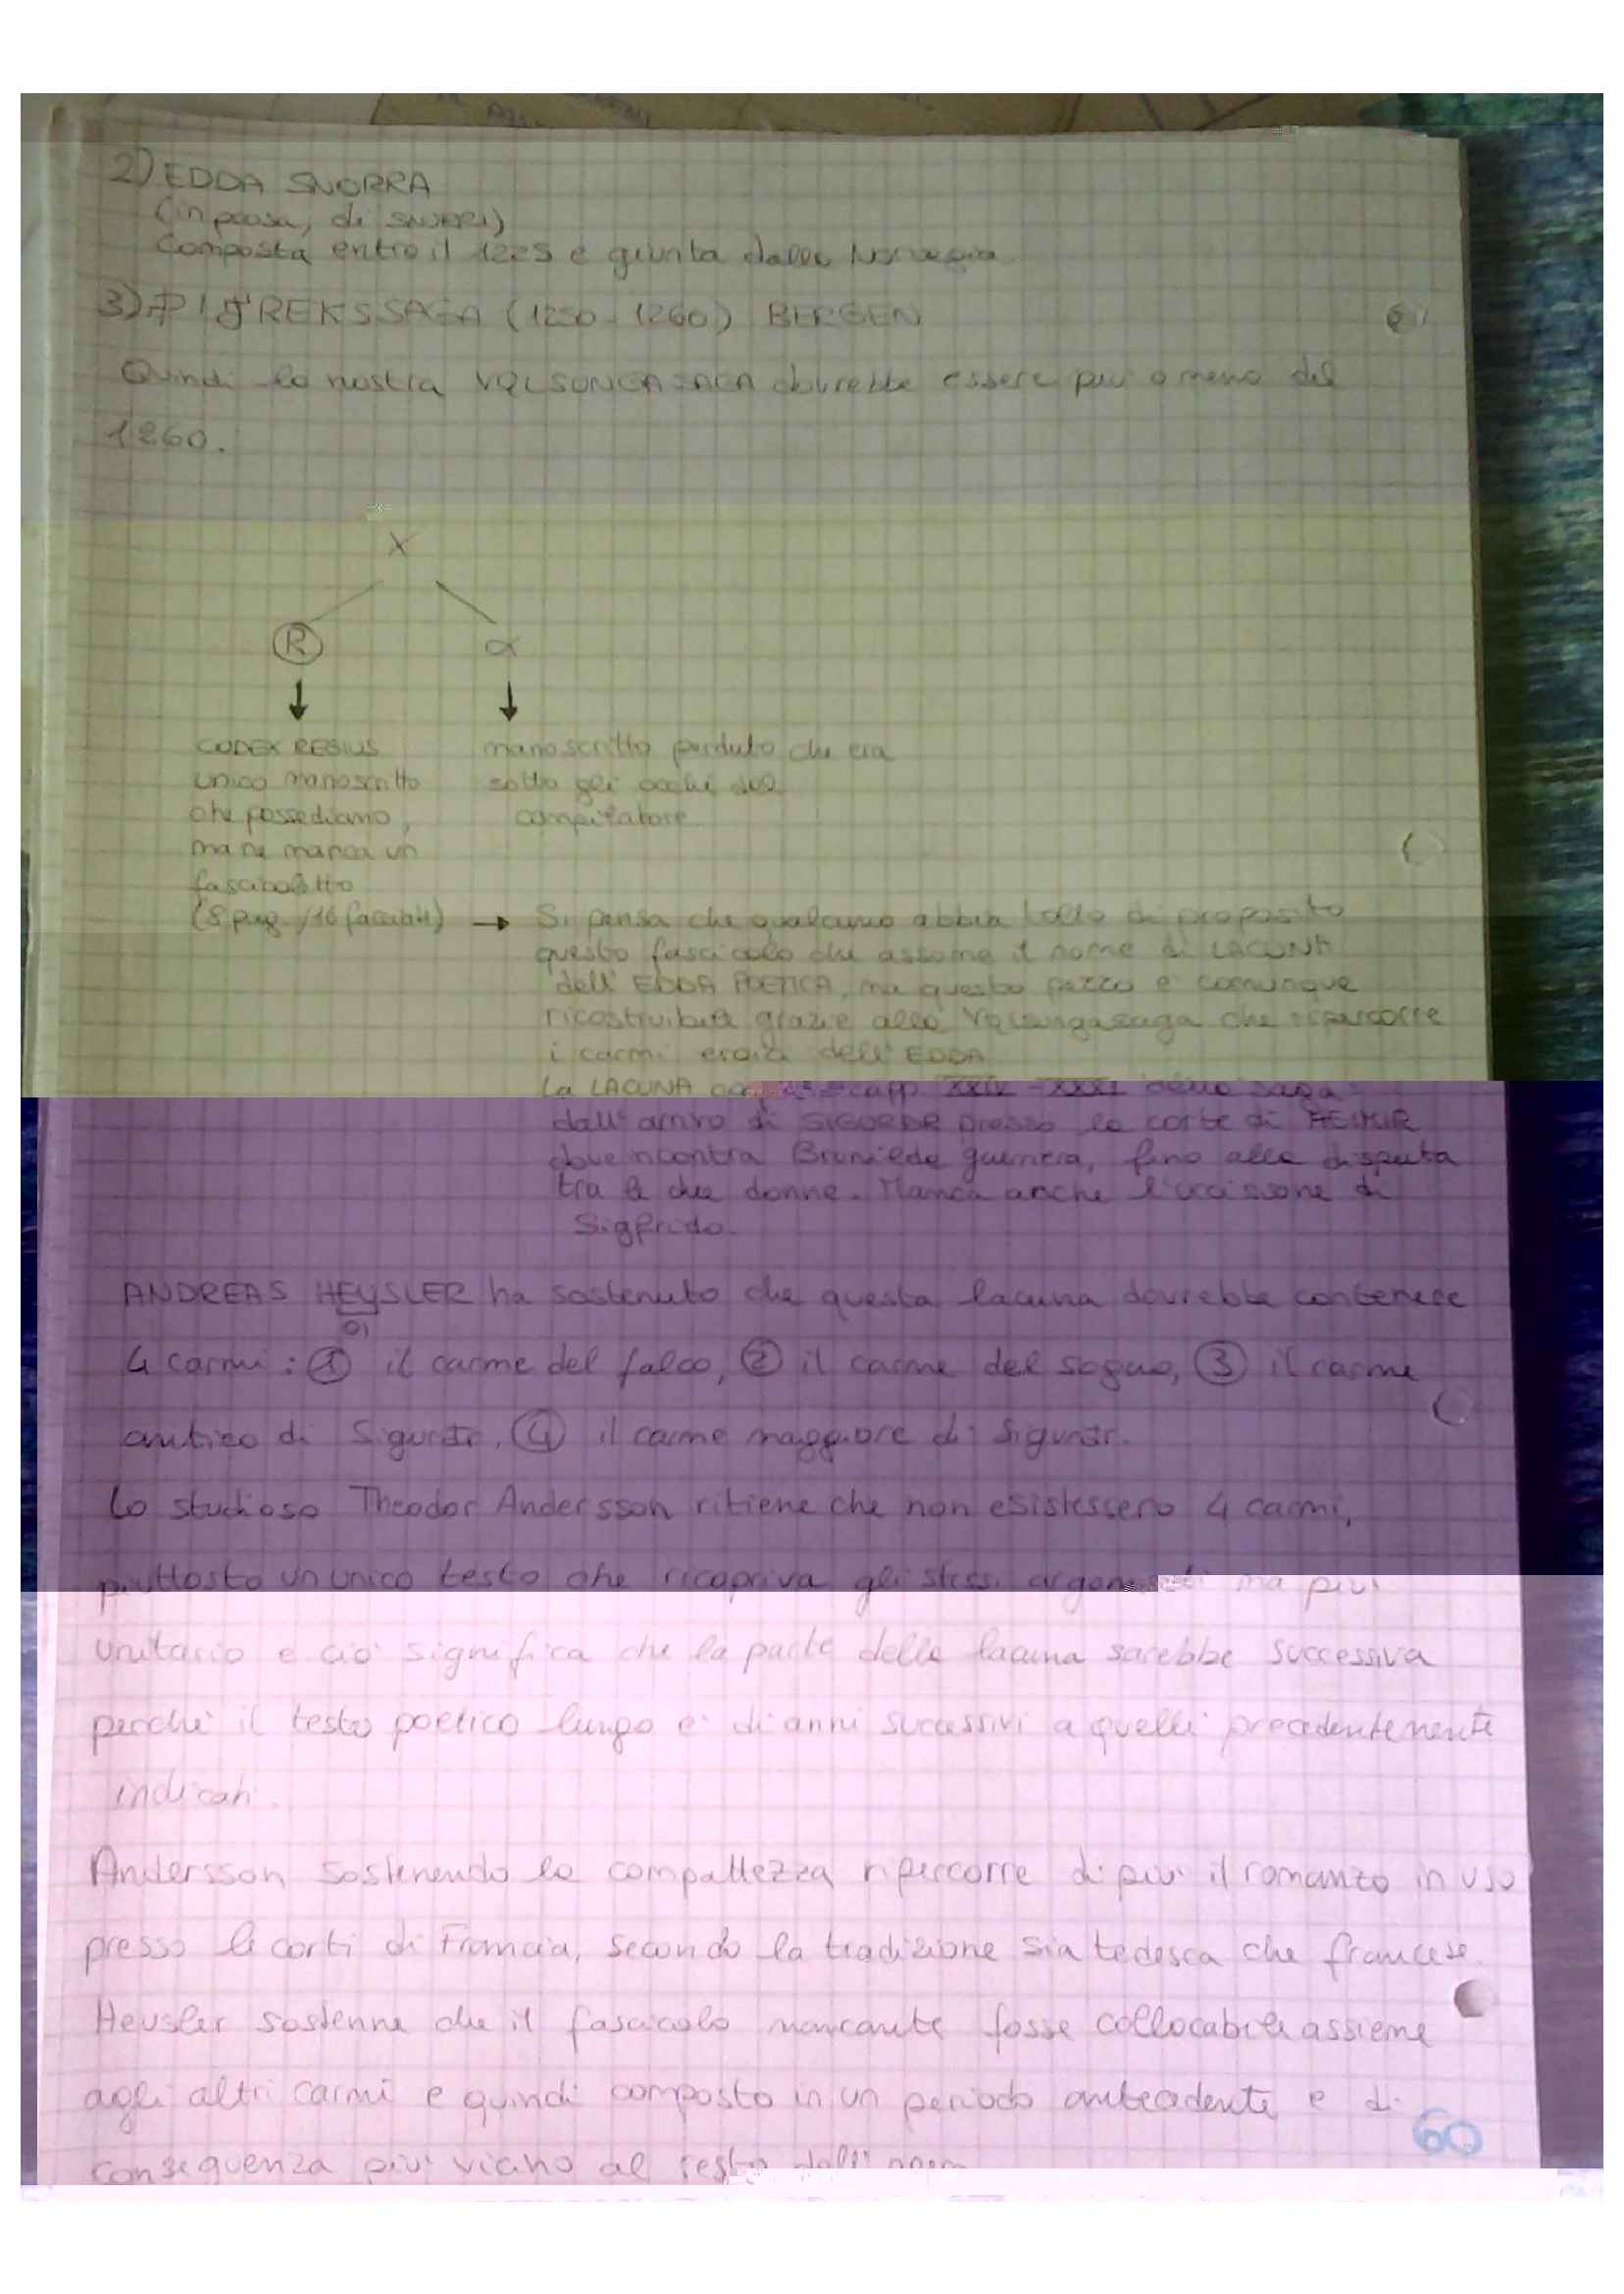 2) EDDA SNORRA
(in prosa, di SNORRI)
Composta entro il 1225 e giunta dalla Norvegia
3) ÞIÐREKSSAGA (1250-1260) BERGEN
Quindi la nostra VOLSUNGASAGA dovrebbe essere più o meno del
1260.
X
R α
CODEX REGIUS
unico manoscritto
che possediamo,
ma ne manca un
fascicoletto
(8 pag. /16 facciate) →
manoscritto perduto che era
sotto gli occhi del
compilatore.
Si pensa che qualcuno abbia tolto di proposito
questo fascicolo che assume il nome di LACUNA
dell'EDDA POETICA, ma questo pezzo è comunque
ricostruibile grazie alla Volsungasaga che ripercorre
i carmi eroici dell'EDDA
La LACUNA capp. XXIV - XXXI della saga
dall'arrivo di SIGURDR presso la corte di HEIMIR
dove incontra Brunilde guerriera, fino alla disputa
tra le due donne. Manca anche l'uccisione di
Sigfrido.
ANDREAS HEUSLER ha sostenuto che questa lacuna dovrebbe contenere
oi
4 carmi: ① il carme del falco, ② il carme del sogno, ③ il carme
antico di Sigurdr, ④ il carme maggiore di Sigurdr.
Lo studioso Theodor Andersson ritiene che non esistessero 4 carmi,
piuttosto un unico testo che ricopriva gli stessi argomenti ma più
unitario e ciò significa che la parte della lacuna sarebbe successiva
perchè il testo poetico lungo è di anni successivi a quelli precedentemente
indicati.
Andersson sostenendo la compattezza ripercorre di più il romanzo in uso
presso le corti di Francia, secondo la tradizione sia tedesca che francese.
Heusler sostenne che il fascicolo mancante fosse collocabile assieme
agli altri carmi e quindi composto in un periodo antecedente e di
conseguenza più vicino al resto dell'opera
60